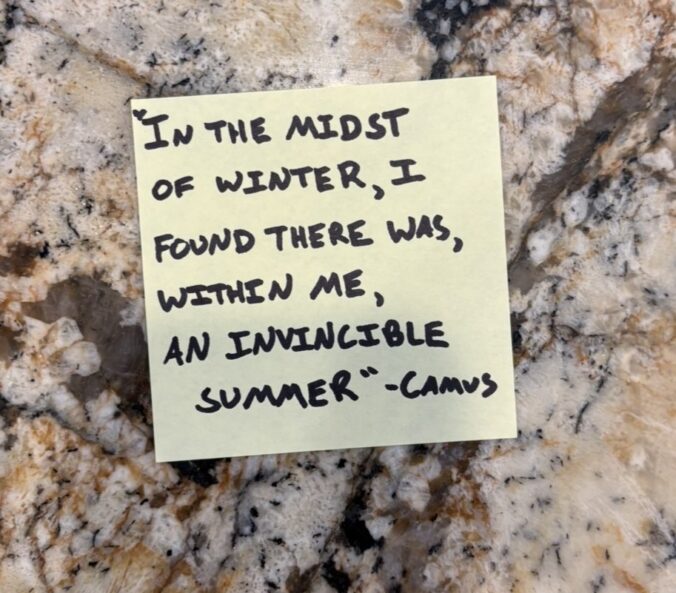 "IN THE MIDST
OF WINTER, I
FOUND THERE WAS,
WITHIN ME,
AN INVINCIBLE
SUMMER" -CAMUS